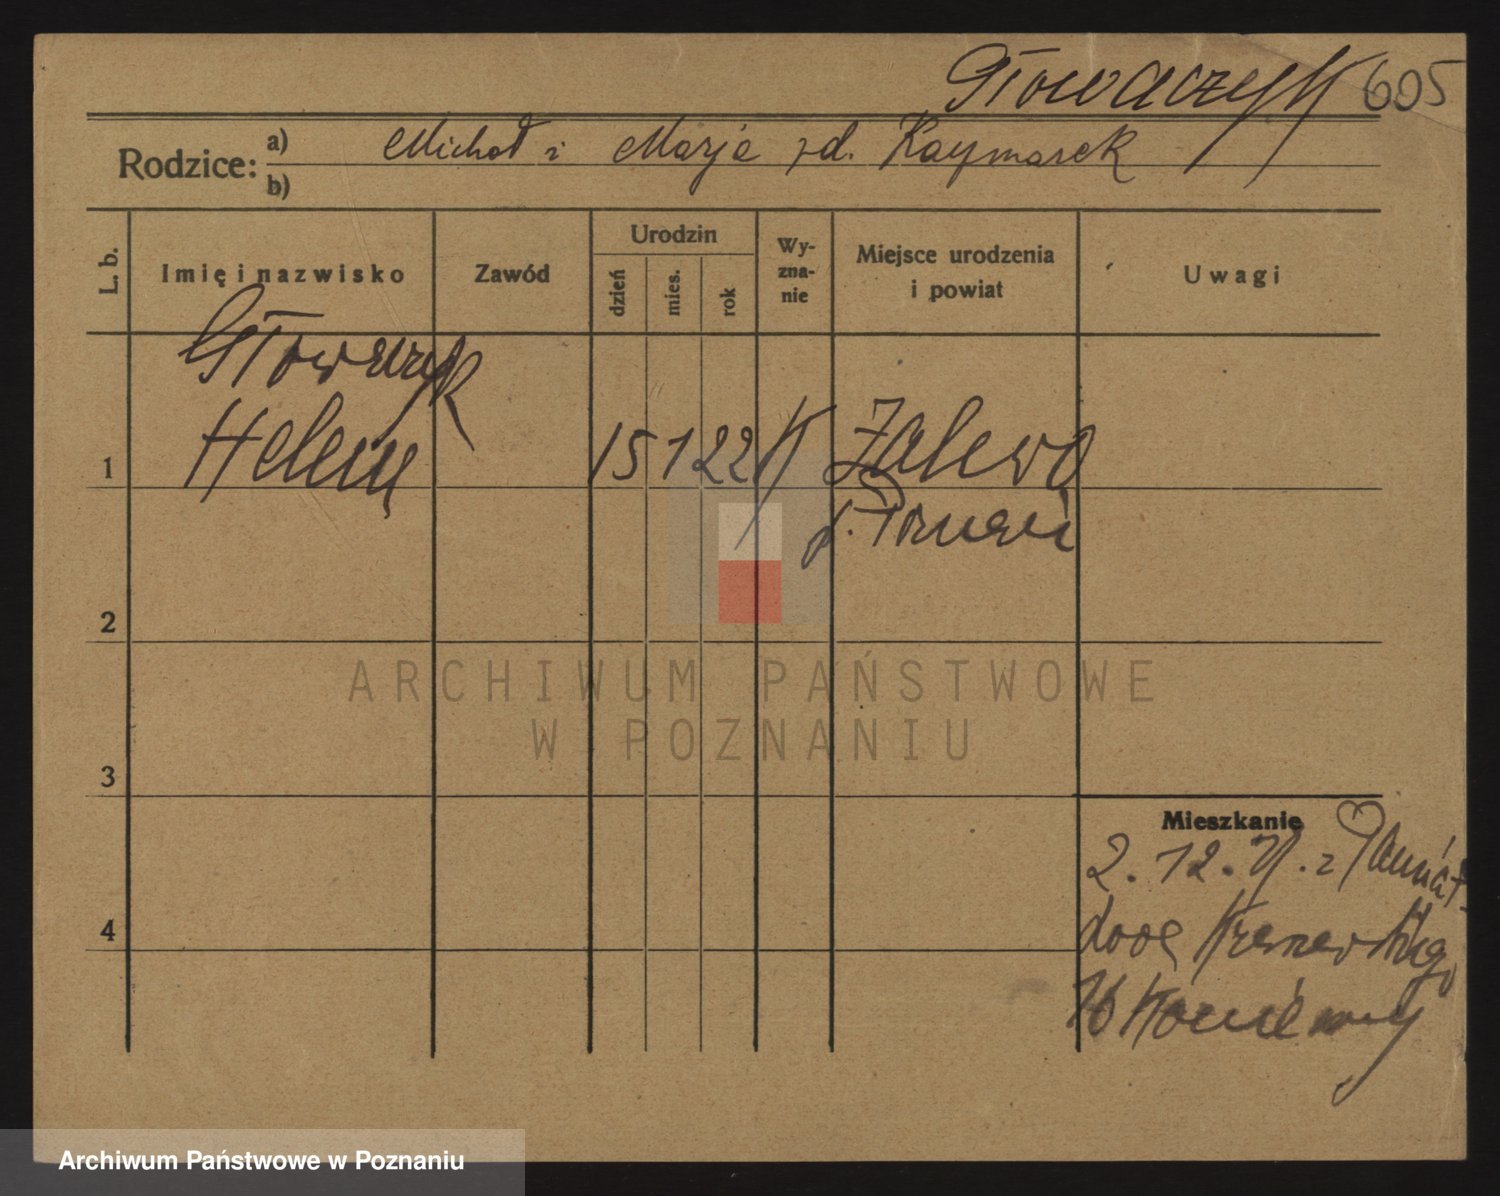 Głowaczyk 605
Rodzice:
a) Michał i Marja zd. Kaczmarek
b)
L. b.
Imię i nazwisko
Zawód
Urodzin
dzień
mies.
rok
Wy-
zna-
nie
Miejsce urodzenia
i powiat
Uwagi
Głowaczyk
Helena
15 1 22 K Zalewo
1
p. Poznań
2
ARCHIWUM PAŃSTWOWE
W POZNANIU
3
Mieszkanie
2. 12.
4
Archiwum Państwowe w Poznaniu